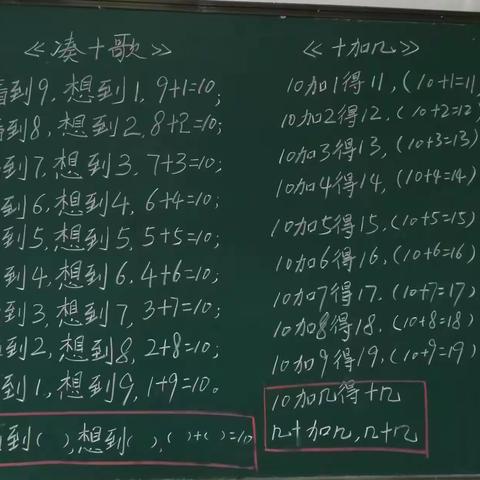 《凑十歌》
看到9,想到1,9+1=10;
看到8,想到2,8+2=10;
到7,想到3,7+3=10;
到6,想到4,6+4=10;
到5,想到5,5+5=10;
到4,想到6,4+6=10;
到3,想到7,3+7=10;
到2,想到8,2+8=10;
到1,想到9,1+9=10。
到( ),想到( ),( )+( )=10
《十加几》
10加1得11,(10+1=11
10加2得12,(10+2=12
10加3得13,(10+3=13)
10加4得14,(10+4=14)
10加5得15,(10+5=15)
10加6得16,(10+6=16)
10加7得17,(10+7=17)
10加8得18,(10+8=18)
10加9得19,(10+9=19)
10加几得十几
几十加几,几十几